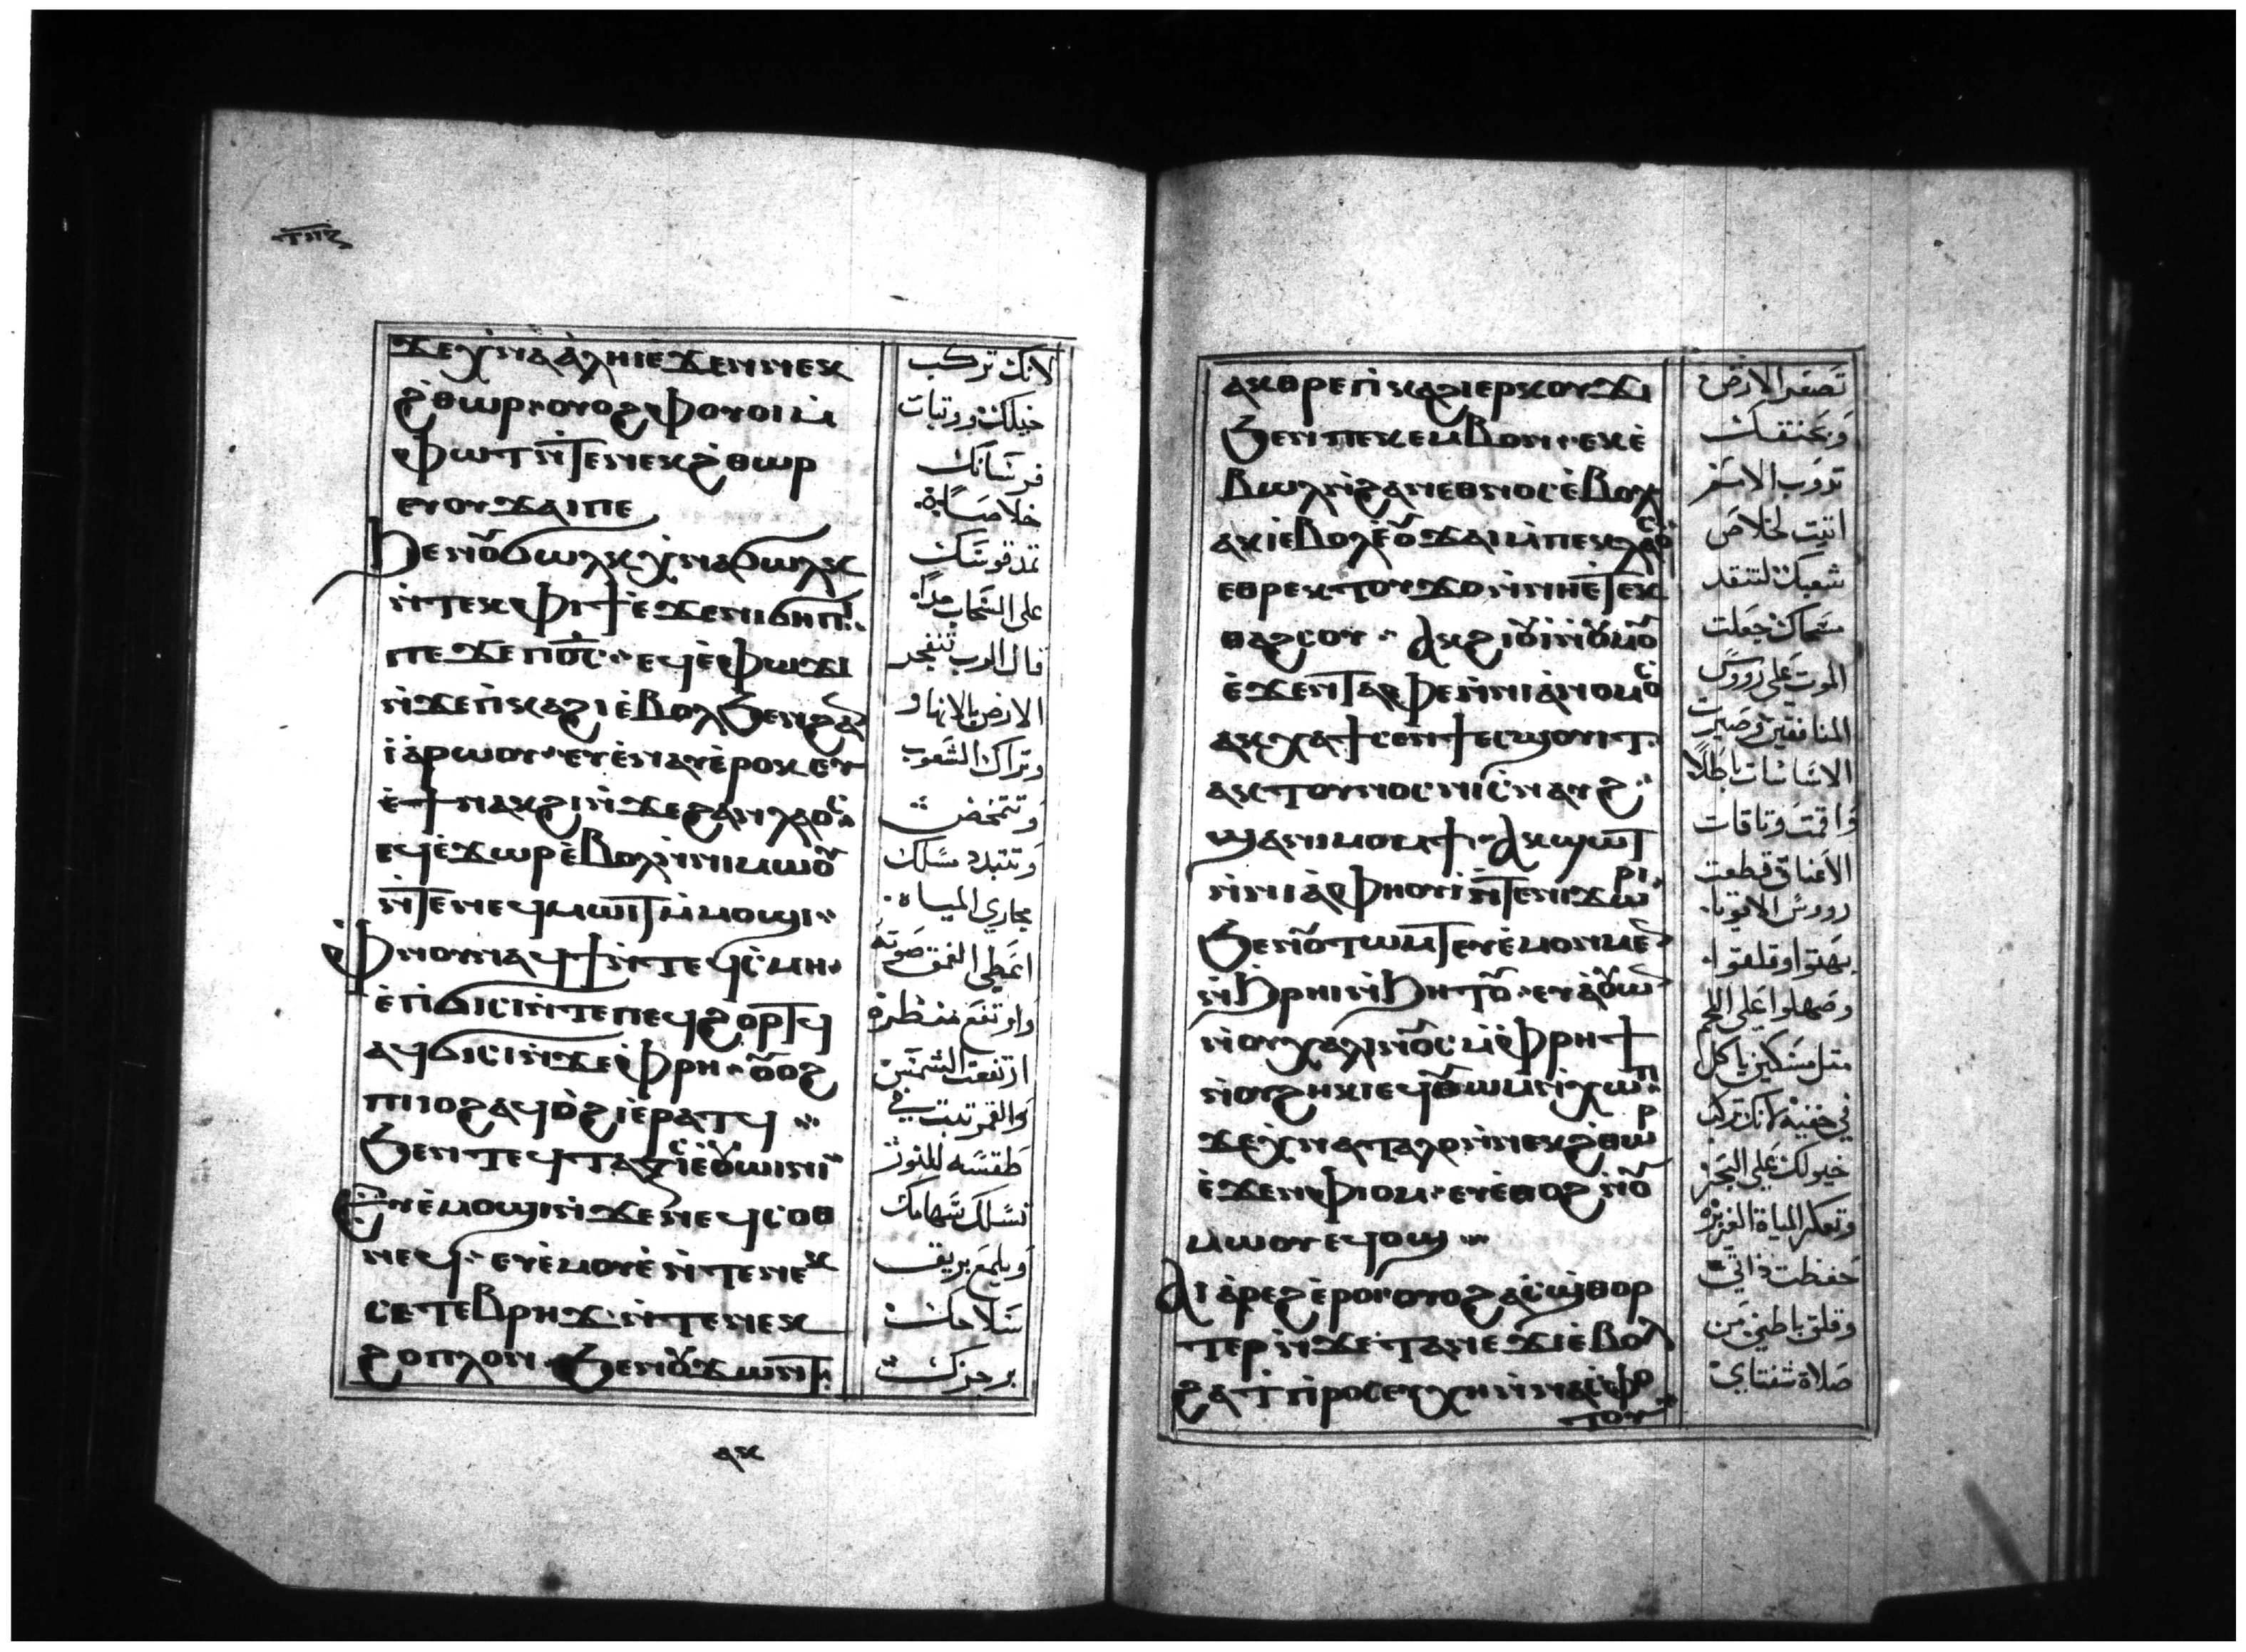 ϫⲉⲭ̀ⲛⲁⲁ̀ⲗⲏⲓⲉϫⲉⲛⲛⲉⲕ
ϩ̀ⲑⲱⲣ·ⲟⲩⲟϩⲫⲟⲩⲟⲓⲙ̀
ⲫⲱⲧⲛ̀ⲧⲉⲛⲉⲕϩ̀ⲑⲱⲣ
ⲉⲩⲟⲩϫⲁⲓⲡⲉ
ϧⲉⲛⲟⲩϭⲱⲗⲕⲭ̀ⲛⲁϭⲱⲗⲕ
ⲛ̀ⲧⲉⲕⲫⲓϯⲉ̀ϫⲉⲛⲛⲓϭⲏⲡⲓ
ⲡⲉϫⲉⲡ̀ⲟ̅ⲥ̅·ⲉϥⲉ̀ⲫⲱϫⲓ
ⲛ̀ϫⲉⲡ̀ⲕⲁϩⲓⲉ̀ⲃⲟⲗϧⲉⲛϩⲁⲛ
ⲓⲁ̀ⲣⲱⲟⲩ·ⲉⲩⲉ̀ⲛⲁⲩⲉ̀ⲣⲟⲕⲉⲩ
ⲉ̀ϯⲛⲁⲕϩⲓⲛ̀ϫⲉϩⲁⲛⲗⲁⲟⲥ
ⲉϥⲉ̀ϫⲱⲣⲉ̀ⲃⲟⲗⲛ̀ⲛⲓⲙⲱⲟⲩ
ⲛ̀ⲧⲉⲛⲉϥⲙⲱⲓⲧⲙ̀ⲙⲟϣⲓ·
ⲫ̀ⲛⲟⲩⲛⲁϥϯⲛ̀ⲧⲉϥⲥ̀ⲙⲏ·
ⲉ̀ⲡ̀ϭⲓⲥⲓⲛ̀ⲧⲉⲡⲉϥϩⲟⲣⲧϥ
ⲁϥϭⲓⲥⲓⲛ̀ϫⲉⲫ̀ⲣⲏ·ⲟⲩⲟϩ
ⲡⲓⲓⲟϩⲁϥⲟ̀ϩⲓⲉ̀ⲣⲁⲧϥ
ϧⲉⲛⲧⲉϥⲧⲁⲝⲓⲥⲉⲩⲟⲩⲱⲓⲛⲓ
ⲉⲩⲉ̀ⲙⲟϣⲓⲛ̀ϫⲉⲛⲉϥⲥⲟⲑ
ⲛⲉϥ·ⲉⲩⲉ̀ⲙⲟⲩⲉ̀ⲛ̀ⲧⲉⲛⲉⲕ
ⲥⲉⲧⲉⲃⲣⲏϫⲛ̀ⲧⲉⲛⲉⲕ
ϩⲟⲡⲗⲟⲛ·ϧⲉⲛⲟⲩϫⲱⲛⲧ
ⲁⲕ
لانك تركب
خيلك ووتبات
فرسانك
خلاصاة
تمد قوسك
على السحاب مدا
قال الرب تنفجر
الارض بالانهار
وتراك الشعوب
وتتمخض
وتتبدد مسلك
مجاري المياه
اعطى العمق صوته
وارتفع منظره
ارتفعت الشمس
والقمر تبت في
طقسه للنور
تسلك سهامك
ويلمع بريق
سلاحك
برجزك
ⲁⲕⲑⲣⲉⲡ̀ⲕⲁϩⲓⲉⲣⲕⲟⲩϫⲓ
ϧⲉⲛⲡⲉⲕⲉⲙⲃⲟⲛ·ⲉⲕⲉ̀
ⲃⲱⲗⲛ̀ϩⲁⲛⲉⲑⲛⲟⲥⲉ̀ⲃⲟⲗ
ⲁⲕⲓⲉ̀ⲃⲟⲗⲉⲩⲟⲩϫⲁⲓⲙ̀ⲡⲉⲕⲗⲁⲟⲥ
ⲉⲑⲣⲉⲕⲧⲟⲩϫⲟⲛ̀ⲛⲏⲉ̀ⲧⲉⲕ
ⲑⲁϩⲥⲟⲩ·ⲁⲕϩⲓⲟⲩⲓⲛ̀ⲟⲩⲙⲟⲩ
ⲉ̀ϫⲉⲛⲧⲁⲫⲉⲛ̀ⲛⲓⲁ̀ⲛⲟⲙⲟⲥ
ⲁⲕⲭⲁϯⲥⲉⲛϯⲉⲥϣⲟⲩⲓⲧ·
ⲁⲕⲧⲟⲩⲛⲟⲥⲛⲓⲥ̀ⲛⲁⲩϩ
ϣⲁⲛⲙⲟⲩϯ·ⲁⲕϣⲱⲧ
ⲛ̀ⲛⲓⲁ̀ⲫⲏⲟⲩⲓⲛ̀ⲧⲉⲛⲓϫⲱⲣⲓ
ϧⲉⲛⲟⲩⲧⲱⲙⲧⲉⲩⲉ̀ⲙⲟⲛⲙⲉⲛ
ⲛ̀ϧⲣⲏⲓⲛ̀ϧⲏⲧⲟⲩ·ⲉⲩⲁ̀ⲟⲩⲱⲛ
ⲛⲟⲩⲭⲁⲗⲓⲛⲟⲩⲥⲙ̀ⲫ̀ⲣⲏϯ
ⲛⲟⲩϩⲏⲕⲓⲉϥⲟⲩⲱⲙⲛ̀ⲭⲱⲡ
ϫⲉⲭ̀ⲛⲁⲧⲁⲗⲟⲛ̀ⲛⲉⲕϩ̀ⲑⲱⲣ
ⲉ̀ϫⲉⲛⲫⲓⲟⲙ·ⲉⲩⲉ̀ⲑⲟϩⲛⲟⲩ
ⲙⲱⲟⲩⲉϥⲟϣ
ⲁⲓⲁ̀ⲣⲉϩⲉⲣⲟⲓⲟⲩⲟϩⲁⲥϣⲑⲟⲣ
ⲧⲉⲣⲛ̀ϫⲉⲧⲁⲛⲉϫⲓⲉ̀ⲃⲟⲗ
ϩⲁϯⲡ̀ⲣⲟⲥⲉⲩⲭⲏⲛ̀ⲛⲁⲥ̀ⲫⲟ
ⲧⲟⲩ
تصغر الارض
وبحنقك
تدوب الامم
اتيت لخلاص
شعبك لتنقد
مسحاك جعلت
الموت على رووس
المنافقين وصيرت
الاساسات باطلا
واقمت وتاقات
الاعناق قطعت
رووس الاقويا
بهتوا وقلقوا
وصهلوا على اللجم
متل مسكين ياكل
في خفية لانك تركب
خيولك على البحر
وتعكر المياة الغزيره
حفظت داتي
وقلق باطني من
صلاة شفتاي